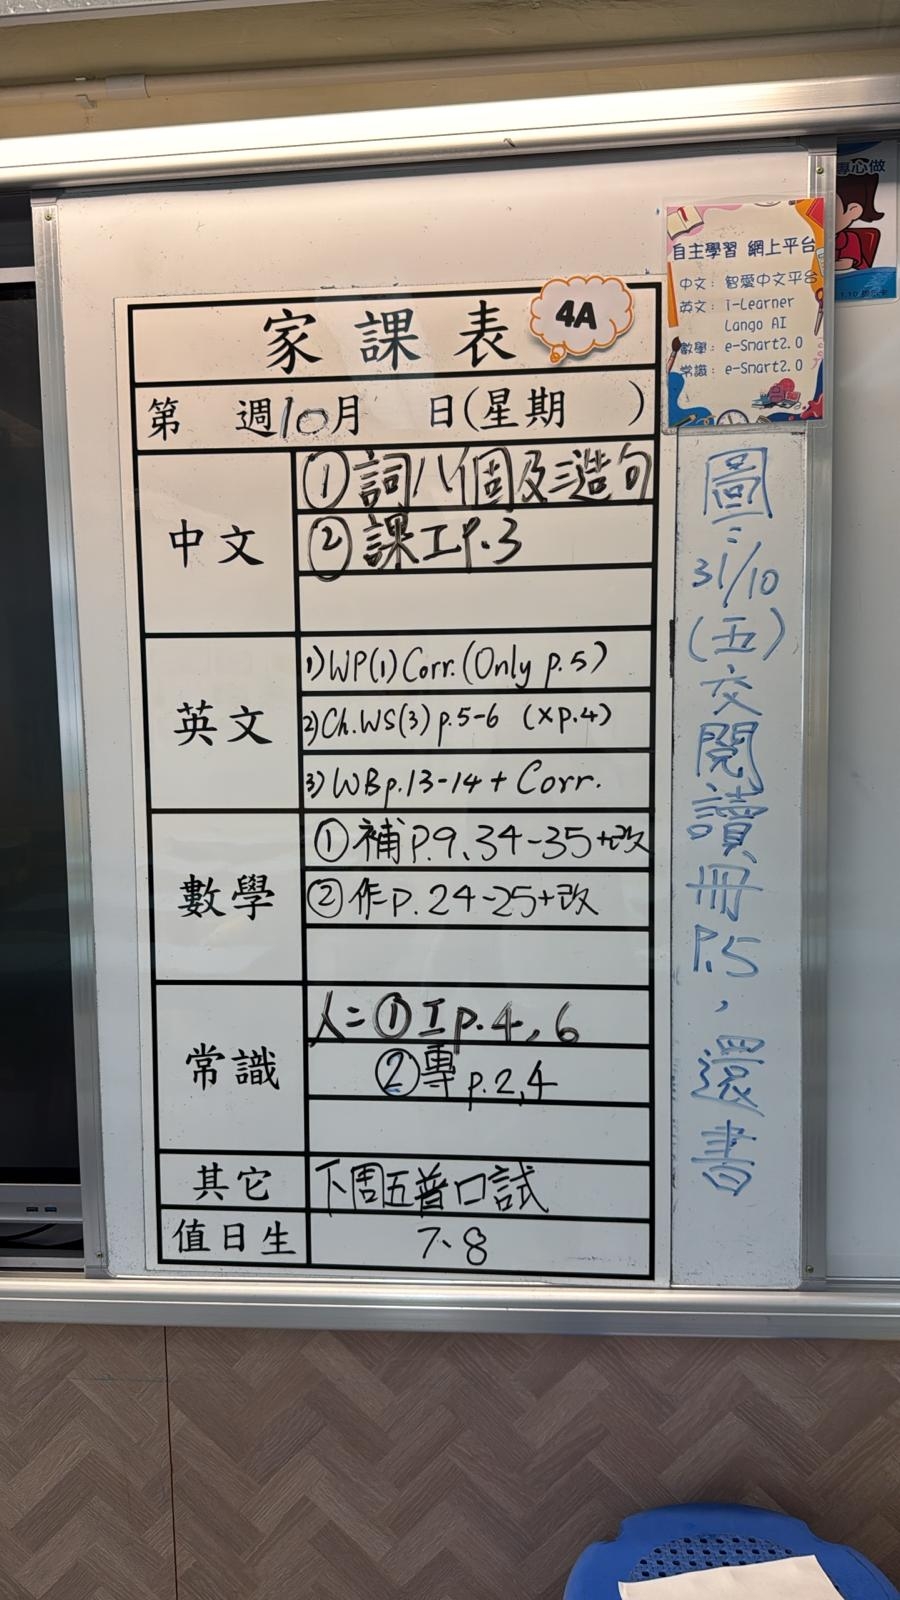 專心做
自主學習 網上平台
中文：智愛中文平台
英文：i-Learner
Lango AI
數學：e-Smart2.0
常識：e-Smart2.0
家課表
4A
第 週10月 日(星期 )
中文
①詞八個及三造句
②課工P.3
英文
1)WP(1)Corr.(Only p.5)
2)Ch.WS(3)p.5-6 (xp.4)
3)WBp.13-14 + Corr.
數學
①補P.9、34-35+改
②作P.24-25+改
常識
人=①工p.4,6
②專p.2,4
其它
下周五普口試
值日生
7、8
圖=31/10(五)交閱讀冊P.5，還書